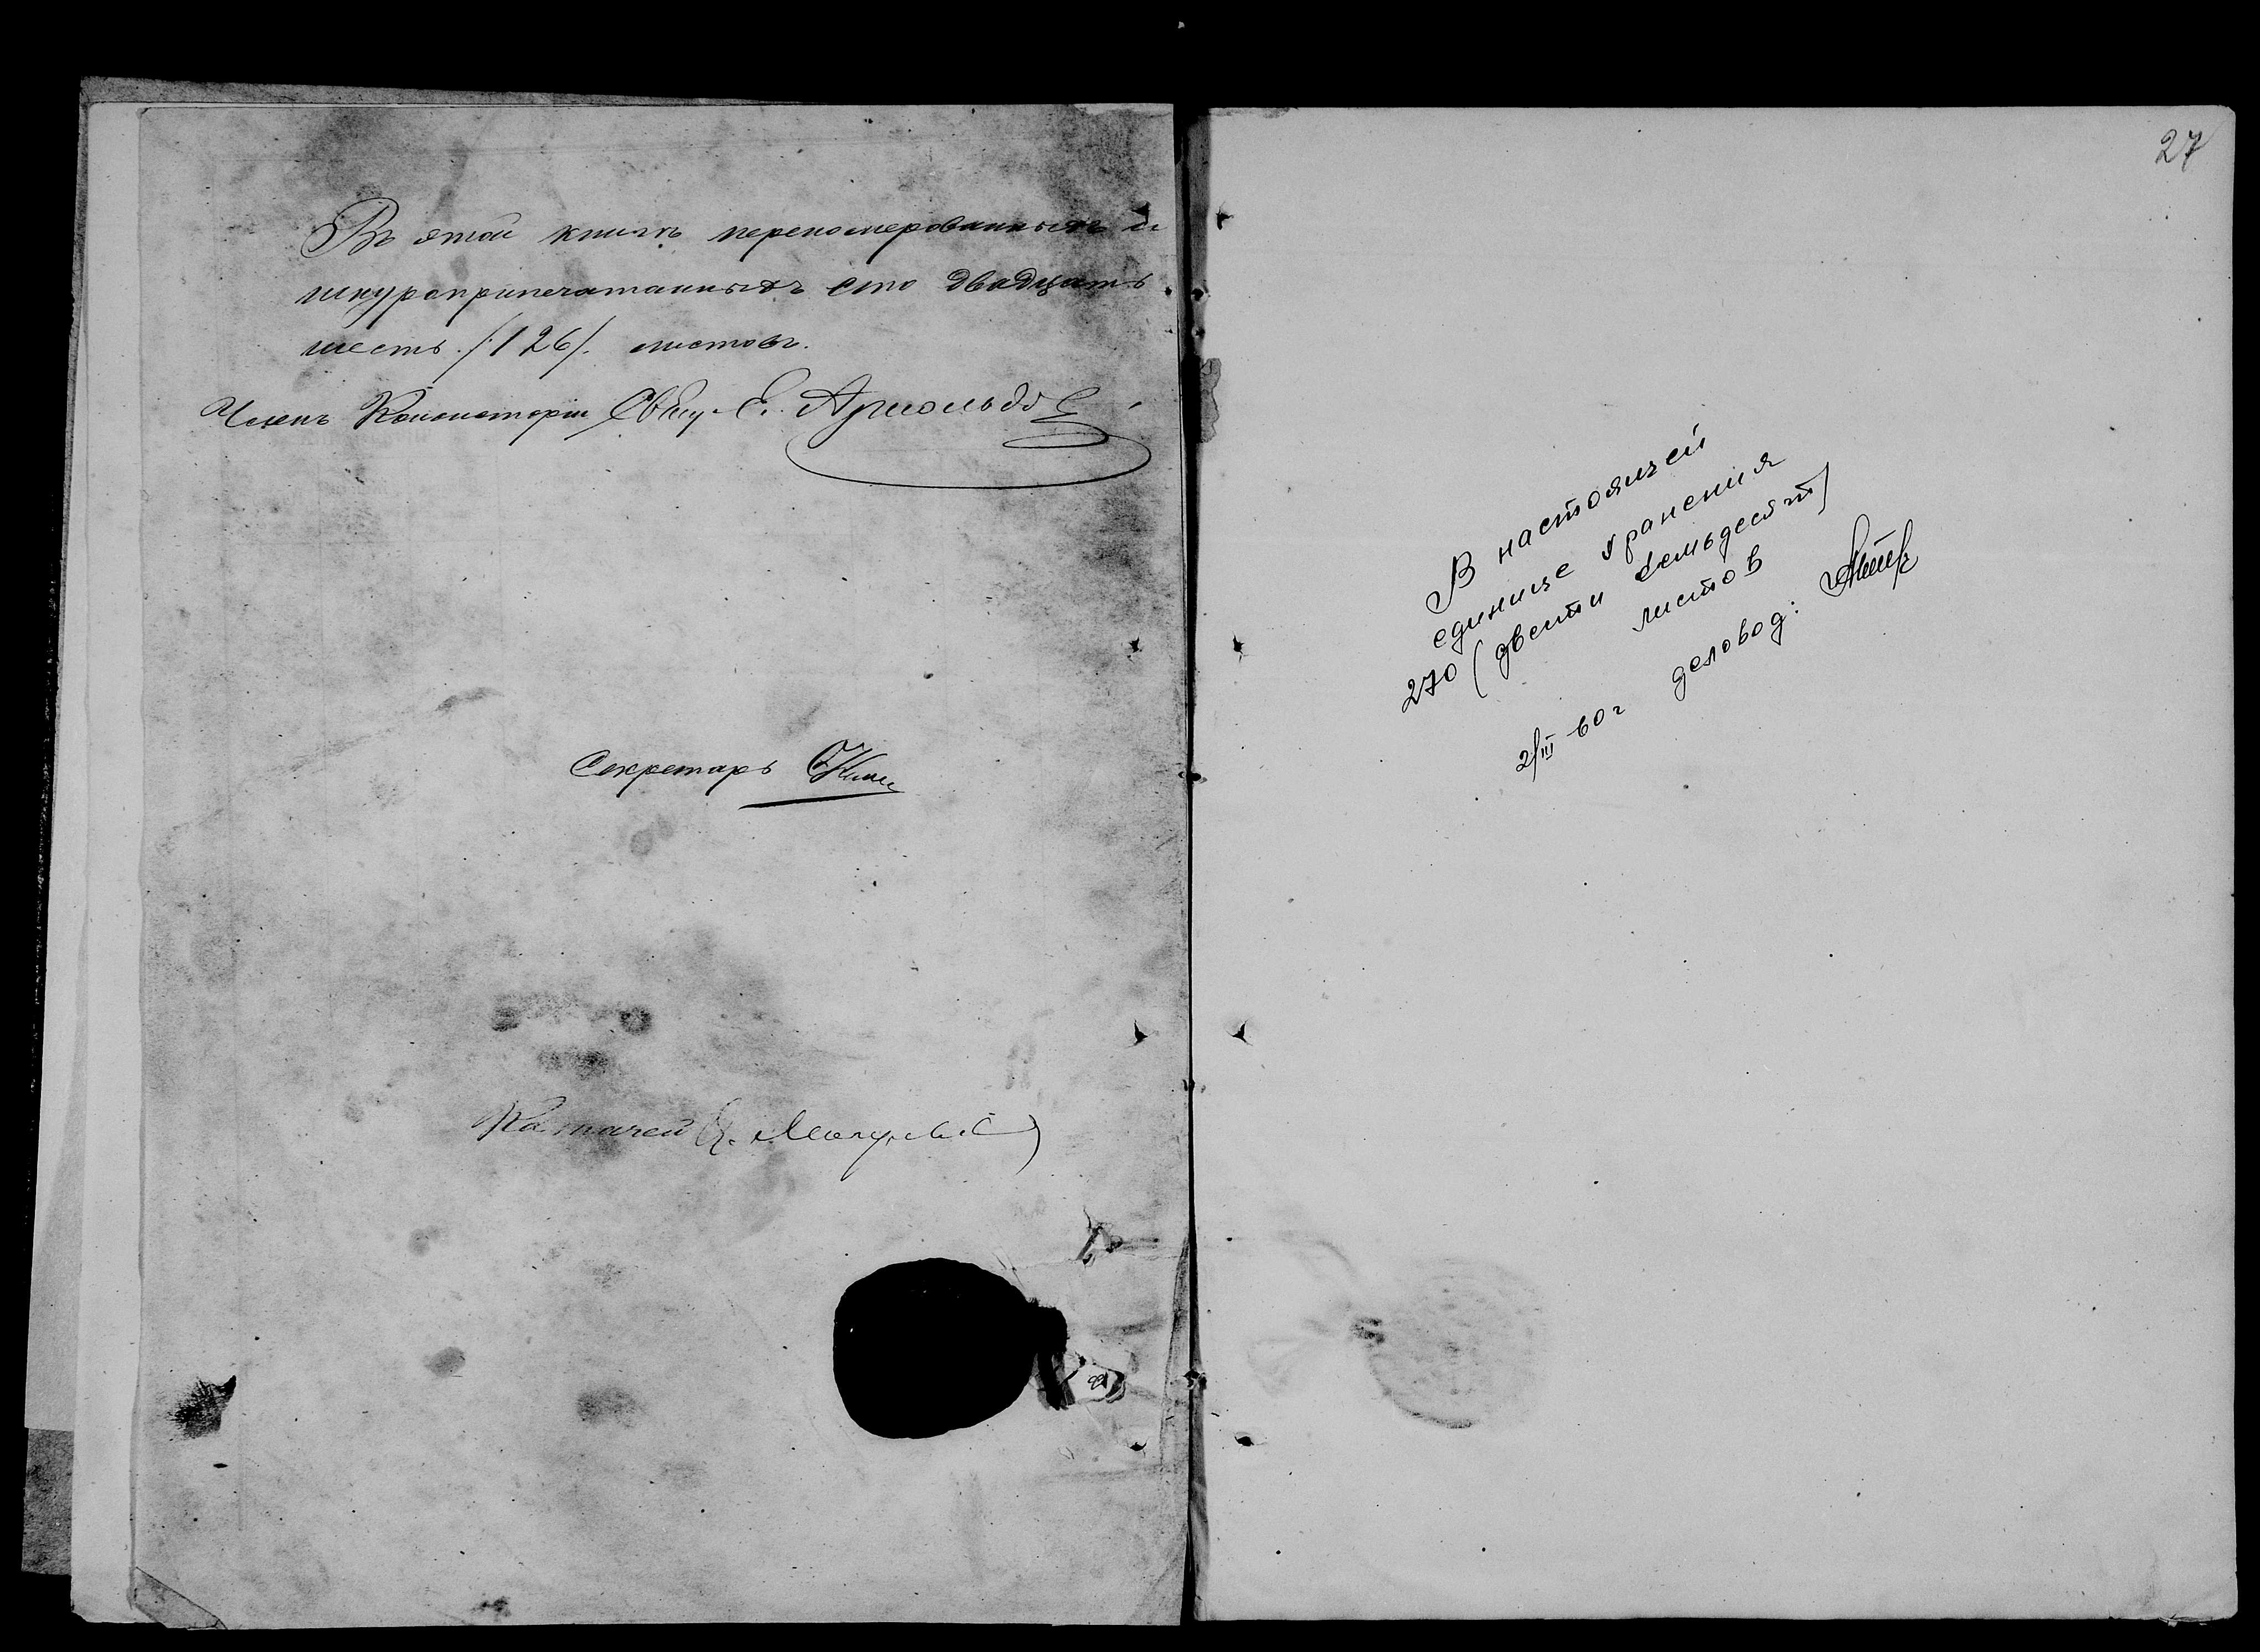 Въ этой книгѣ перенумерованныхъ и
шнуроприпечатанныхъ сто двадцать
шесть /126/. листовъ.
Членъ Консисторіи Свящ. Е. Арнольдовъ
Секретарь
Казначей
27
В настоящей
единице хранения
270 (двести семьдесят)
листов
2/III 60 г деловод: